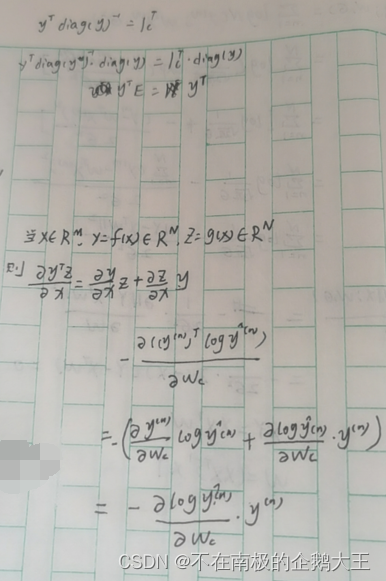 yᵀ diag(y)⁻¹ = 1cᵀ
yᵀ diag(y)⁻¹ · diag(y) = 1cᵀ · diag(y)
yᵀE = yᵀ
若 x∈Rᴹ, y=f(x)∈Rᴺ, z=g(x)∈Rᴺ
则 ∂yᵀz/∂x = ∂y/∂x z + ∂z/∂x y
- ∂((y⁽ⁿ⁾)ᵀ log ŷ⁽ⁿ⁾)/∂Wc
= -(∂y⁽ⁿ⁾/∂Wc log ŷ⁽ⁿ⁾ + ∂log ŷ⁽ⁿ⁾/∂Wc · y⁽ⁿ⁾)
= - ∂log ŷ⁽ⁿ⁾/∂Wc · y⁽ⁿ⁾
CSDN @不在南极的企鹅大王